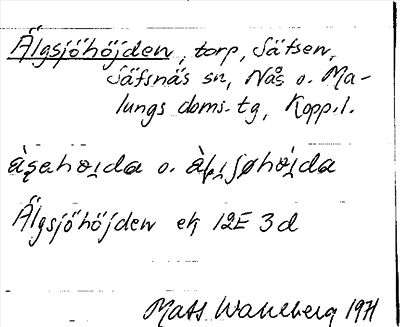 Älgsjöhöjden, torp, Säfsen,
Säfsnäs sn, Nås o. Ma-
lungs doms. tg, Kopp. l.
o.
Älgsjöhöjden ek 12E 3d
Mats Wahlberg 1971